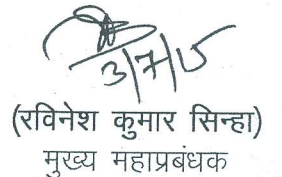 3/7/15
(रविनेश कुमार सिन्हा)
मुख्य महाप्रबंधक